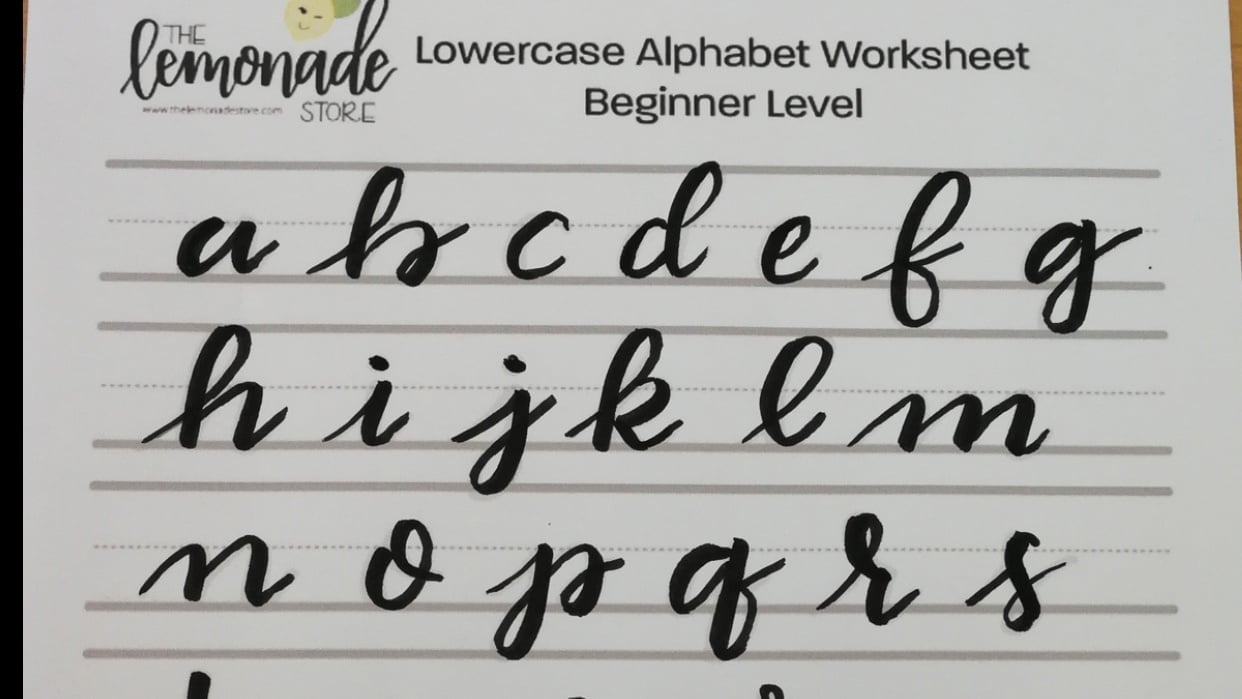 THE
lemonade
www.thelemonadestore.com STORE
Lowercase Alphabet Worksheet
Beginner Level
a b c d e f g
h i j k l m
n o p q r s